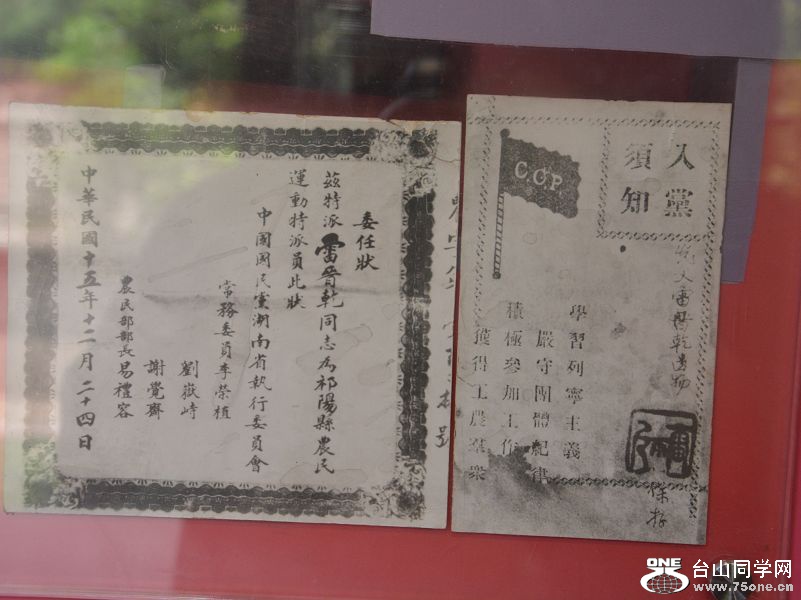 委任狀
茲特派雷晉乾同志為祁陽縣農民
運動特派員此狀
中國國民黨湖南省執行委員會
常務委員李榮植
劉嶽峙
謝覺齋
農民部部長易禮容
中華民國十五年十二月二十四日
入黨
須知
C.C.P.
學習列寧主義
嚴守團體紀律
積極參加工作
獲得工農羣眾
保存
ONE
台山同学网
www.75one.cn